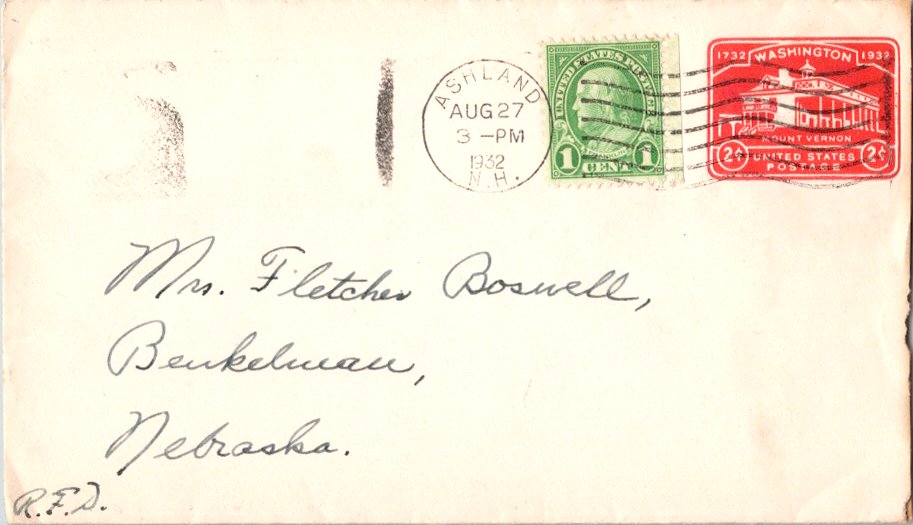 ASHLAND
AUG 27
3 - PM
1932
N.H.
UNITED STATES POSTAGE
1 CENT 1
1732 WASHINGTON 1932
MOUNT VERNON
2¢ UNITED STATES 2¢
POSTAGE
Mrs. Fletcher Boswell,
Benkelman,
Nebraska.
R.F.D.